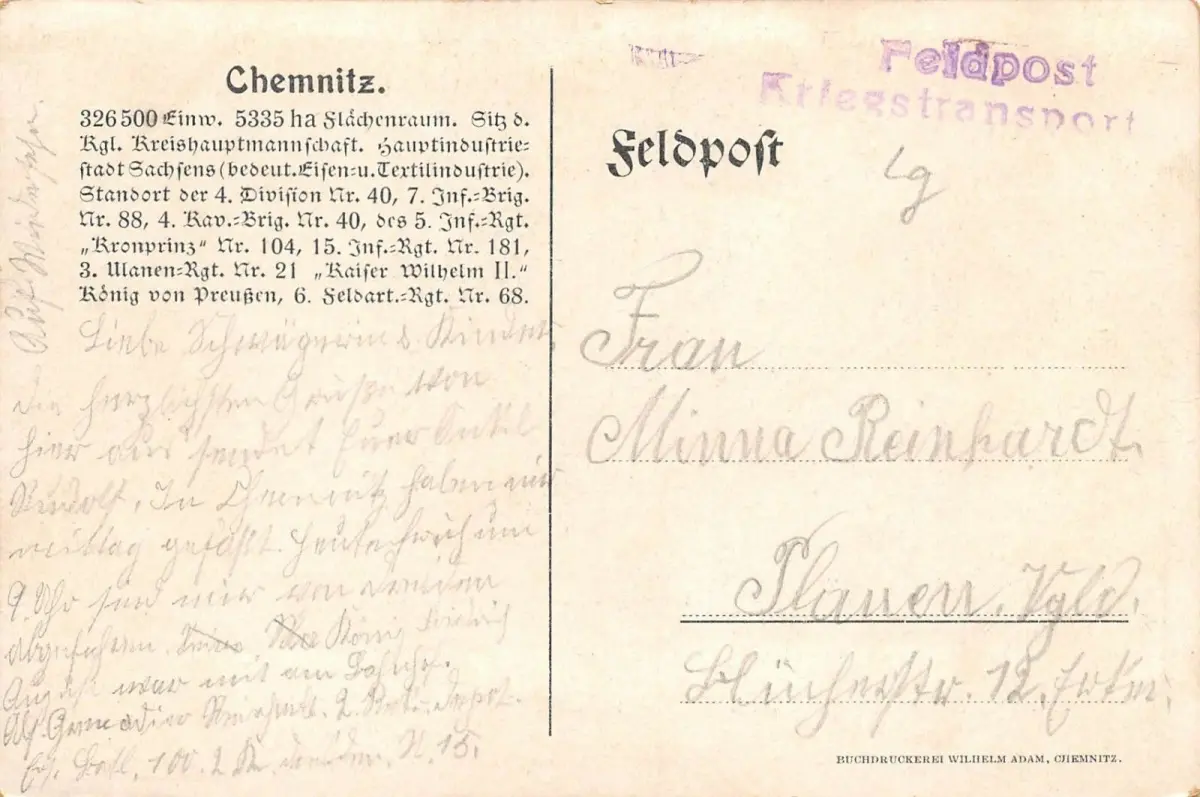 Chemnitz.
326500 Einw. 5335 ha Flächenraum. Sitz d.
Kgl. Kreishauptmannschaft. Hauptindustrie-
stadt Sachsens (bedeut. Eisen- u. Textilindustrie).
Standort der 4. Division Nr. 40, 7. Inf.-Brig.
Nr. 88, 4. Kav.-Brig. Nr. 40, des 5. Inf.-Rgt.
„Kronprinz“ Nr. 104, 15. Inf.-Rgt. Nr. 181,
3. Ulanen-Rgt. Nr. 21 „Kaiser Wilhelm II.“
König von Preußen, 6. Feldart.-Rgt. Nr. 68.
Auf Wiedersehn
Liebe Schwägerin & Kinder
die herzlichsten Grüße von
hier aus sendet Euer Onkel
Rudolf. In Chemnitz haben wir
mittag gefaßt. Heute früh um
9 Uhr sind wir von Dresden
abgefahren. König Friedrich
August war mit am Bahnhof.
Grenadier 2. Depot.
Ers. Batl. 100. 2. K. Dresden. N. 15.
Feldpost
Kriegstransport
Feldpost
Frau
Minna Reinhardt.
Plauen. Vgld.
Blücherstr. 12.
BUCHDRUCKEREI WILHELM ADAM, CHEMNITZ.